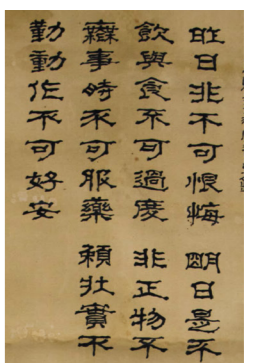 昨日非不可恨悔 明日是不
飲與食不可過度 非正物不
無事時不可服藥 賴壯實不
勤動作不可好安